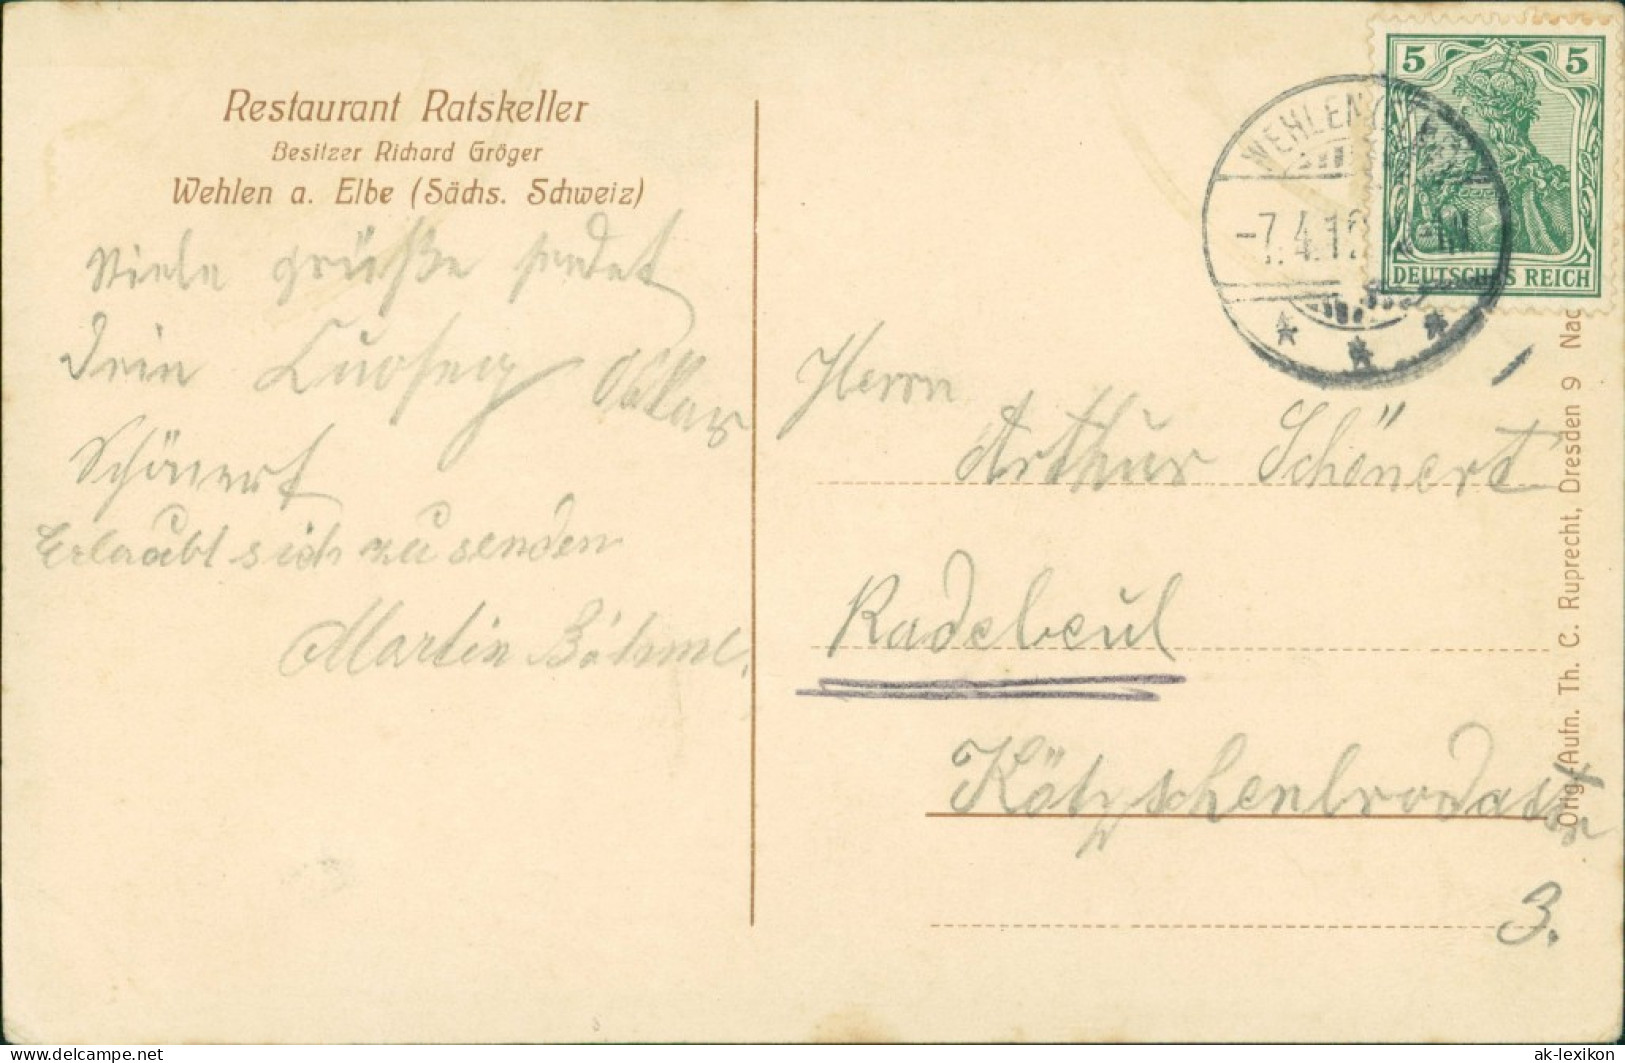 Restaurant Ratskeller
Besitzer Richard Gröger
Wehlen a. Elbe (Sächs. Schweiz)
Viele grüße sendet
dein Oskar
Schönert
Erlaubt sich zu senden
Martin Böhme.
5 5
DEUTSCHES REICH
WEHLEN
-7.4.1
Herrn
Arthur Schönert
Radebeul
Kötzschenbrodastr
3.
Orig.-Aufn. Th. C. Ruprecht, Dresden 9 Nac
www.delcampe.net
ak-lexikon